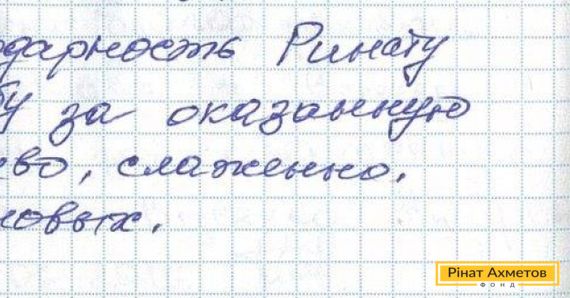 одарность Ринату
у за оказанную
во, слаженно.
новых.
Рінат Ахметов
ФОНД